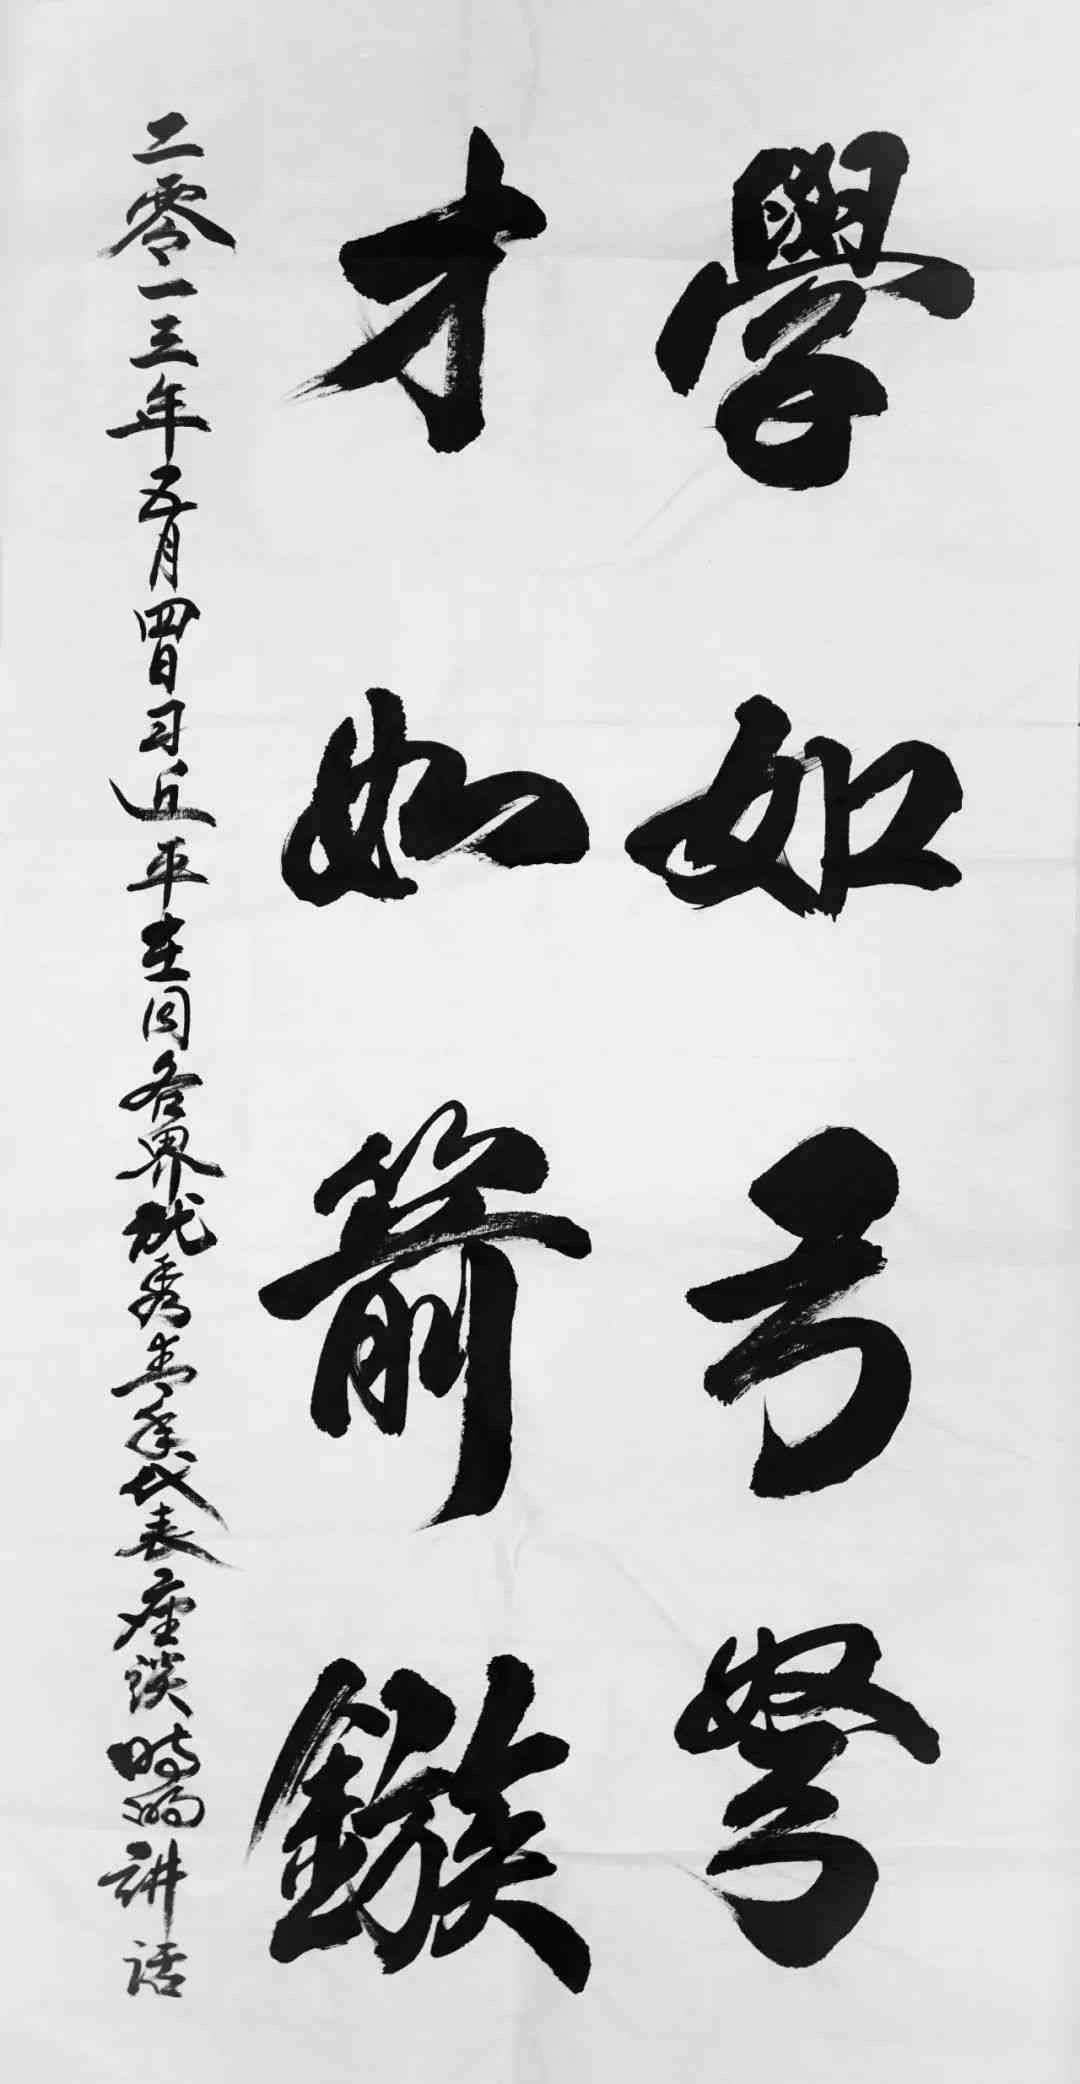 學如弓弩
才如箭鏃
二零一三年五月四日习近平在同各界优秀青年代表座谈時的讲话